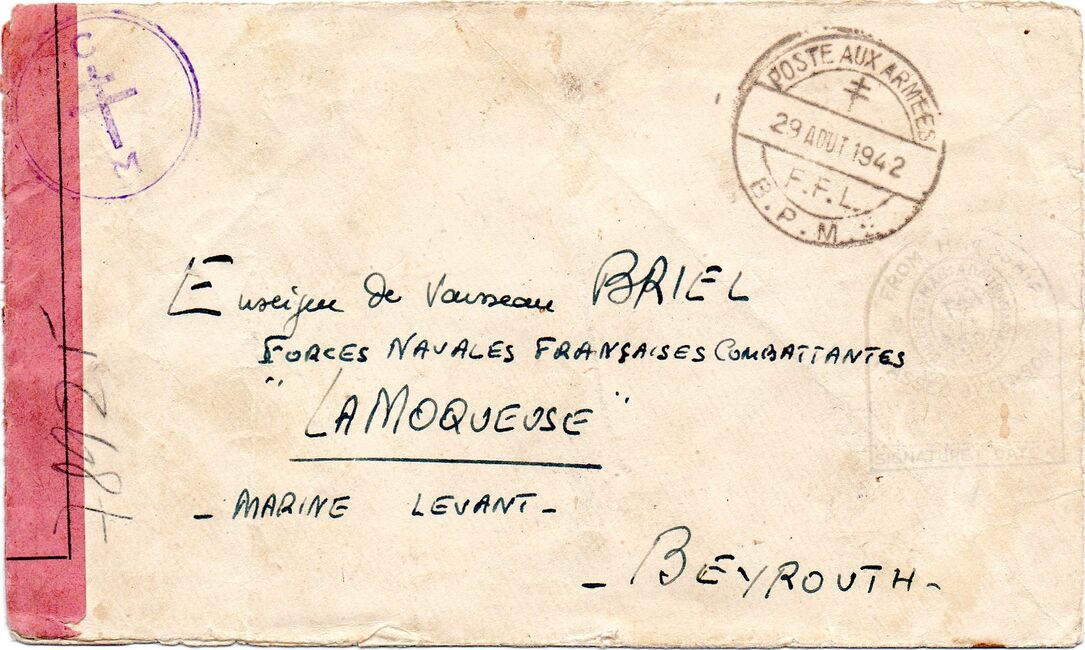 C
M
POSTE AUX ARMÉES
29 AOUT 1942
F.F.L.
B.P.M.
Enseigne de Vaisseau BRIEL
FORCES NAVALES FRANÇAISES COMBATTANTES
"LA MOQUEUSE"
- MARINE LEVANT -
- BEYROUTH -
FROM
SIGNATURE & DATE